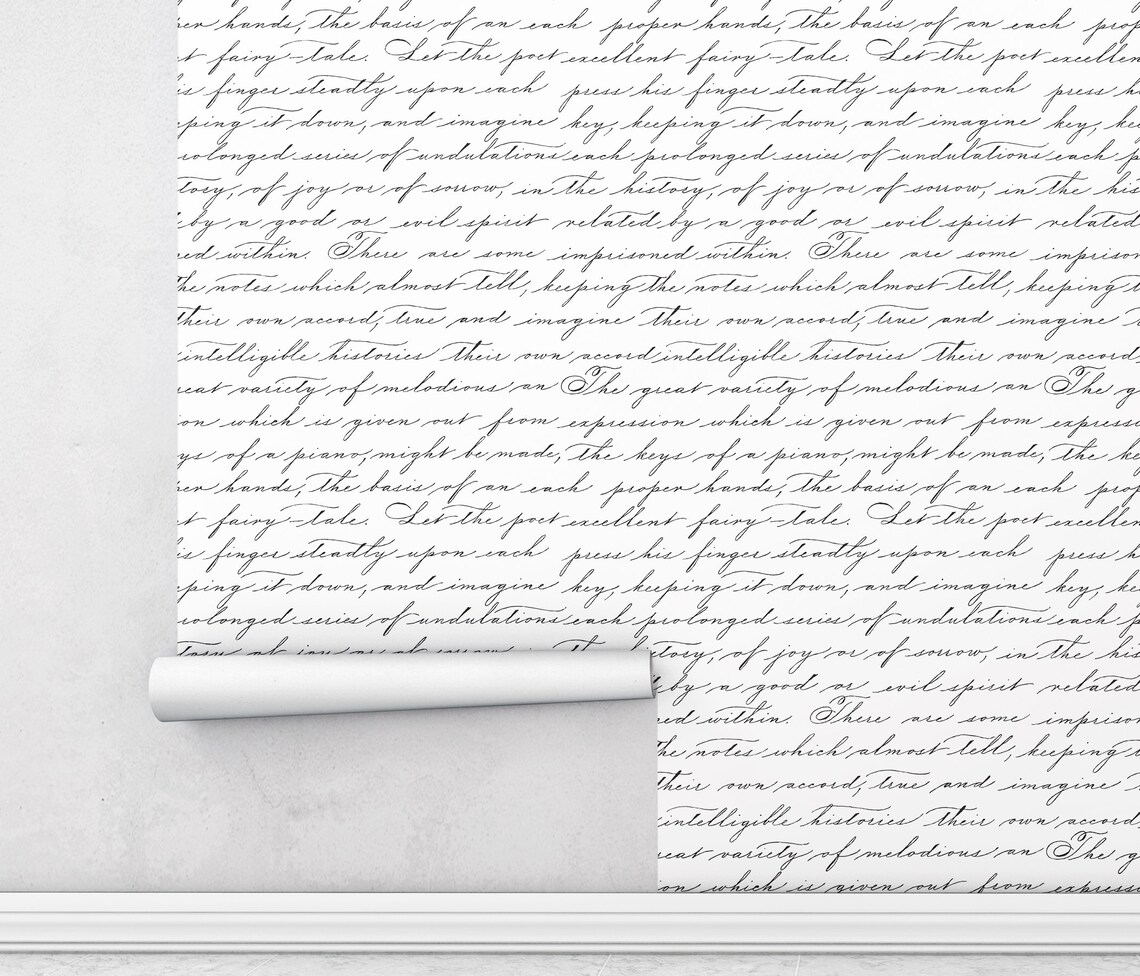 er hands, the basis of an each proper hands, the basis of an each prop
t fairy-tale. Let the poet excellent fairy-tale. Let the poet excellen
is finger steadly upon each press his finger steadly upon each press h
eping it down, and imagine key, keeping it down, and imagine key, ke
rolonged series of undulations each prolonged series of undulations each p
tory, of joy or of sorrow, in the history, of joy or of sorrow, in the his
by a good or evil spirit related by a good or evil spirit related
ned within. There are some imprisoned within. There are some imprison
the notes which almost tell, keeping the notes which almost tell, keeping t
their own accord, true and imagine their own accord, true and imagine
intelligible histories their own accord intelligible histories their own accord
reat variety of melodious an The great variety of melodious an The g
on which is given out from expression which is given out from expressi
ys of a piano, might be made, the keys of a piano, might be made, the ke
er hands, the basis of an each proper hands, the basis of an each prop
t fairy-tale. Let the poet excellent fairy-tale. Let the poet excellen
is finger steadly upon each press his finger steadly upon each press h
eping it down, and imagine key, keeping it down, and imagine key, ke
rolonged series of undulations each prolonged series of undulations each p
tory, of joy or of sorrow, in the history, of joy or of sorrow, in the his
by a good or evil spirit related
ned within. There are some imprison
the notes which almost tell, keeping t
their own accord, true and imagine
intelligible histories their own accord
reat variety of melodious an The g
on which is given out from expressi